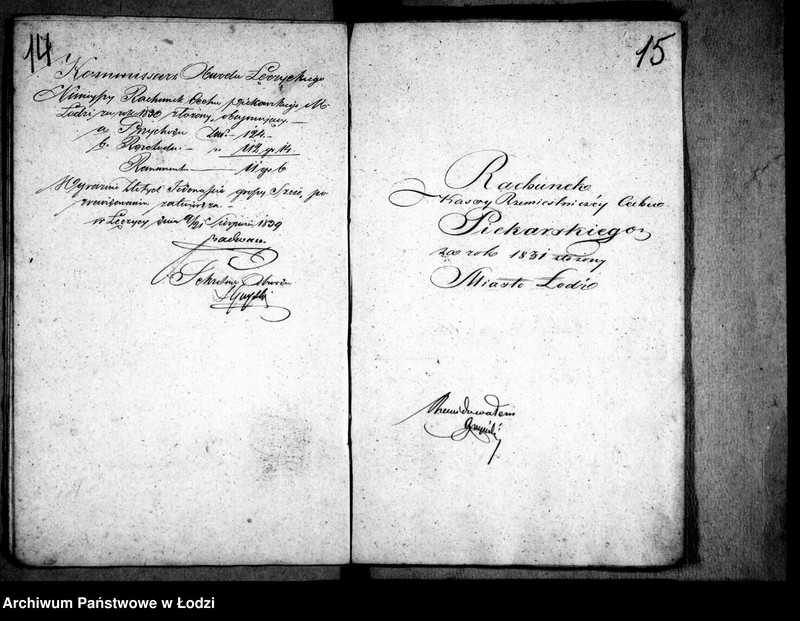 14
Kommissarz Obwodu Łęczyckiego
Ninieyszy Rachunek Cechu Piekarskiego M.
Łodzi za rok 1830 złożony, obeymujący
a Przychodu Złł. 124.
b. Rozchodu " 112 gr 14.
Remanentu 11 gr 6
Wyraźnie Złotych Jedenaście groszy Sześć, po
zrewidowaniu zatwierdza.
w Łęczycy dnia Sierpnia 1839
Sekretarz Obwodu
15
Rachunek
Kassy Rzemieślniczey Cechu
Piekarskiego
za rok 1831 złożony
Miasto Łodź
Rewidowałem
Archiwum Państwowe w Łodzi